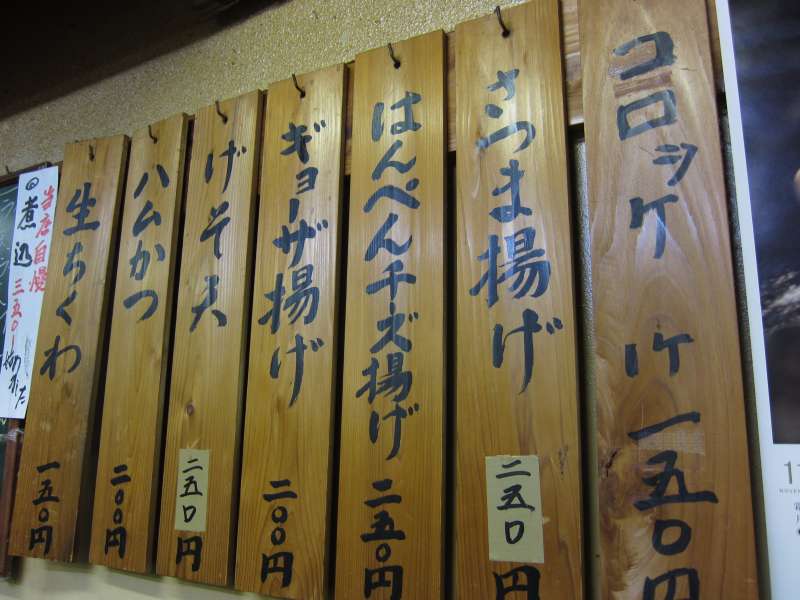 コロッケ 1ケ 一五〇円
さつま揚げ 二五〇円
はんぺんチーズ揚げ 二五〇円
ギョーザ揚げ 二〇〇円
げそ天 二五〇円
ハムかつ 二〇〇円
生ちくわ 一五〇円
当店自慢
の煮込 三五〇ー